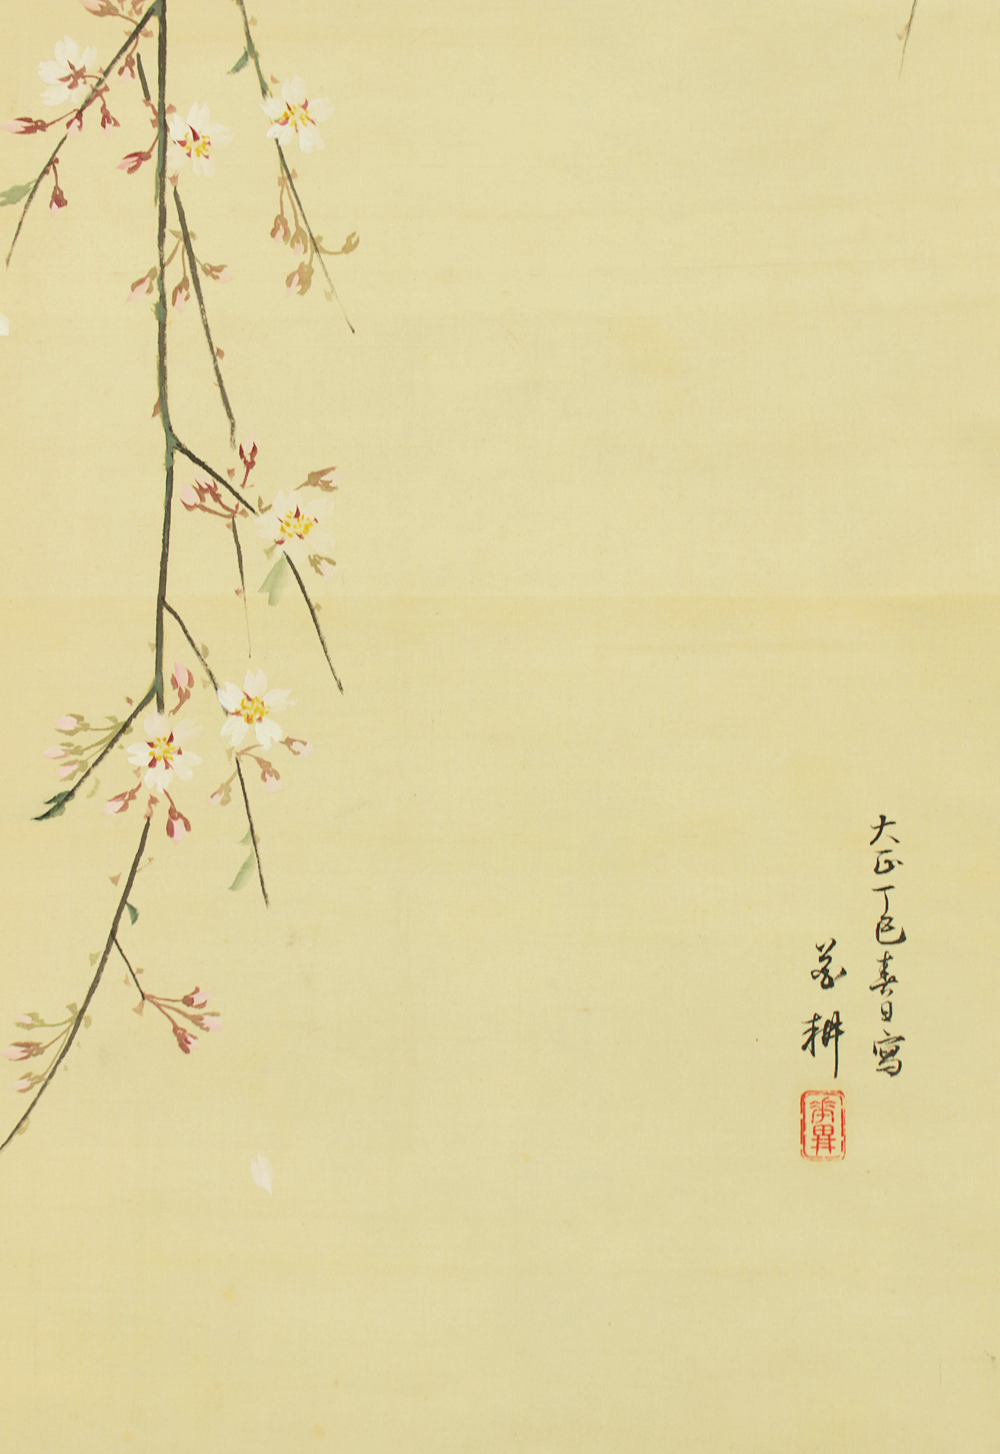 大正丁巳春日寫
華耕